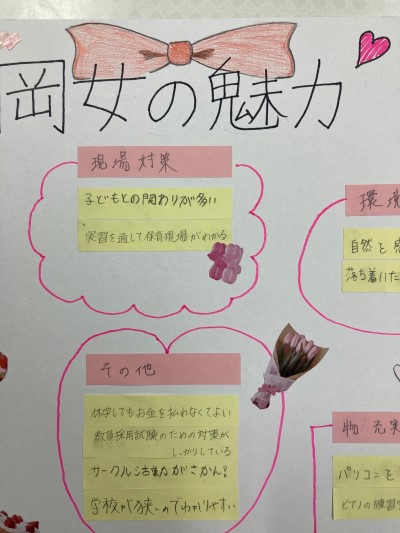 岡女の魅力
現場対策
子どもとの関わりが多い
実習を通して保育現場がわかる
環境
自然を感
落ち着いた
その他
休学してもお金を払わなくてよい
教員採用試験のための対策が
しっかりしている
サークル活動がさかん!
学校が狭いのでわかりやすい
物充実
パソコンを
ピアノの練習